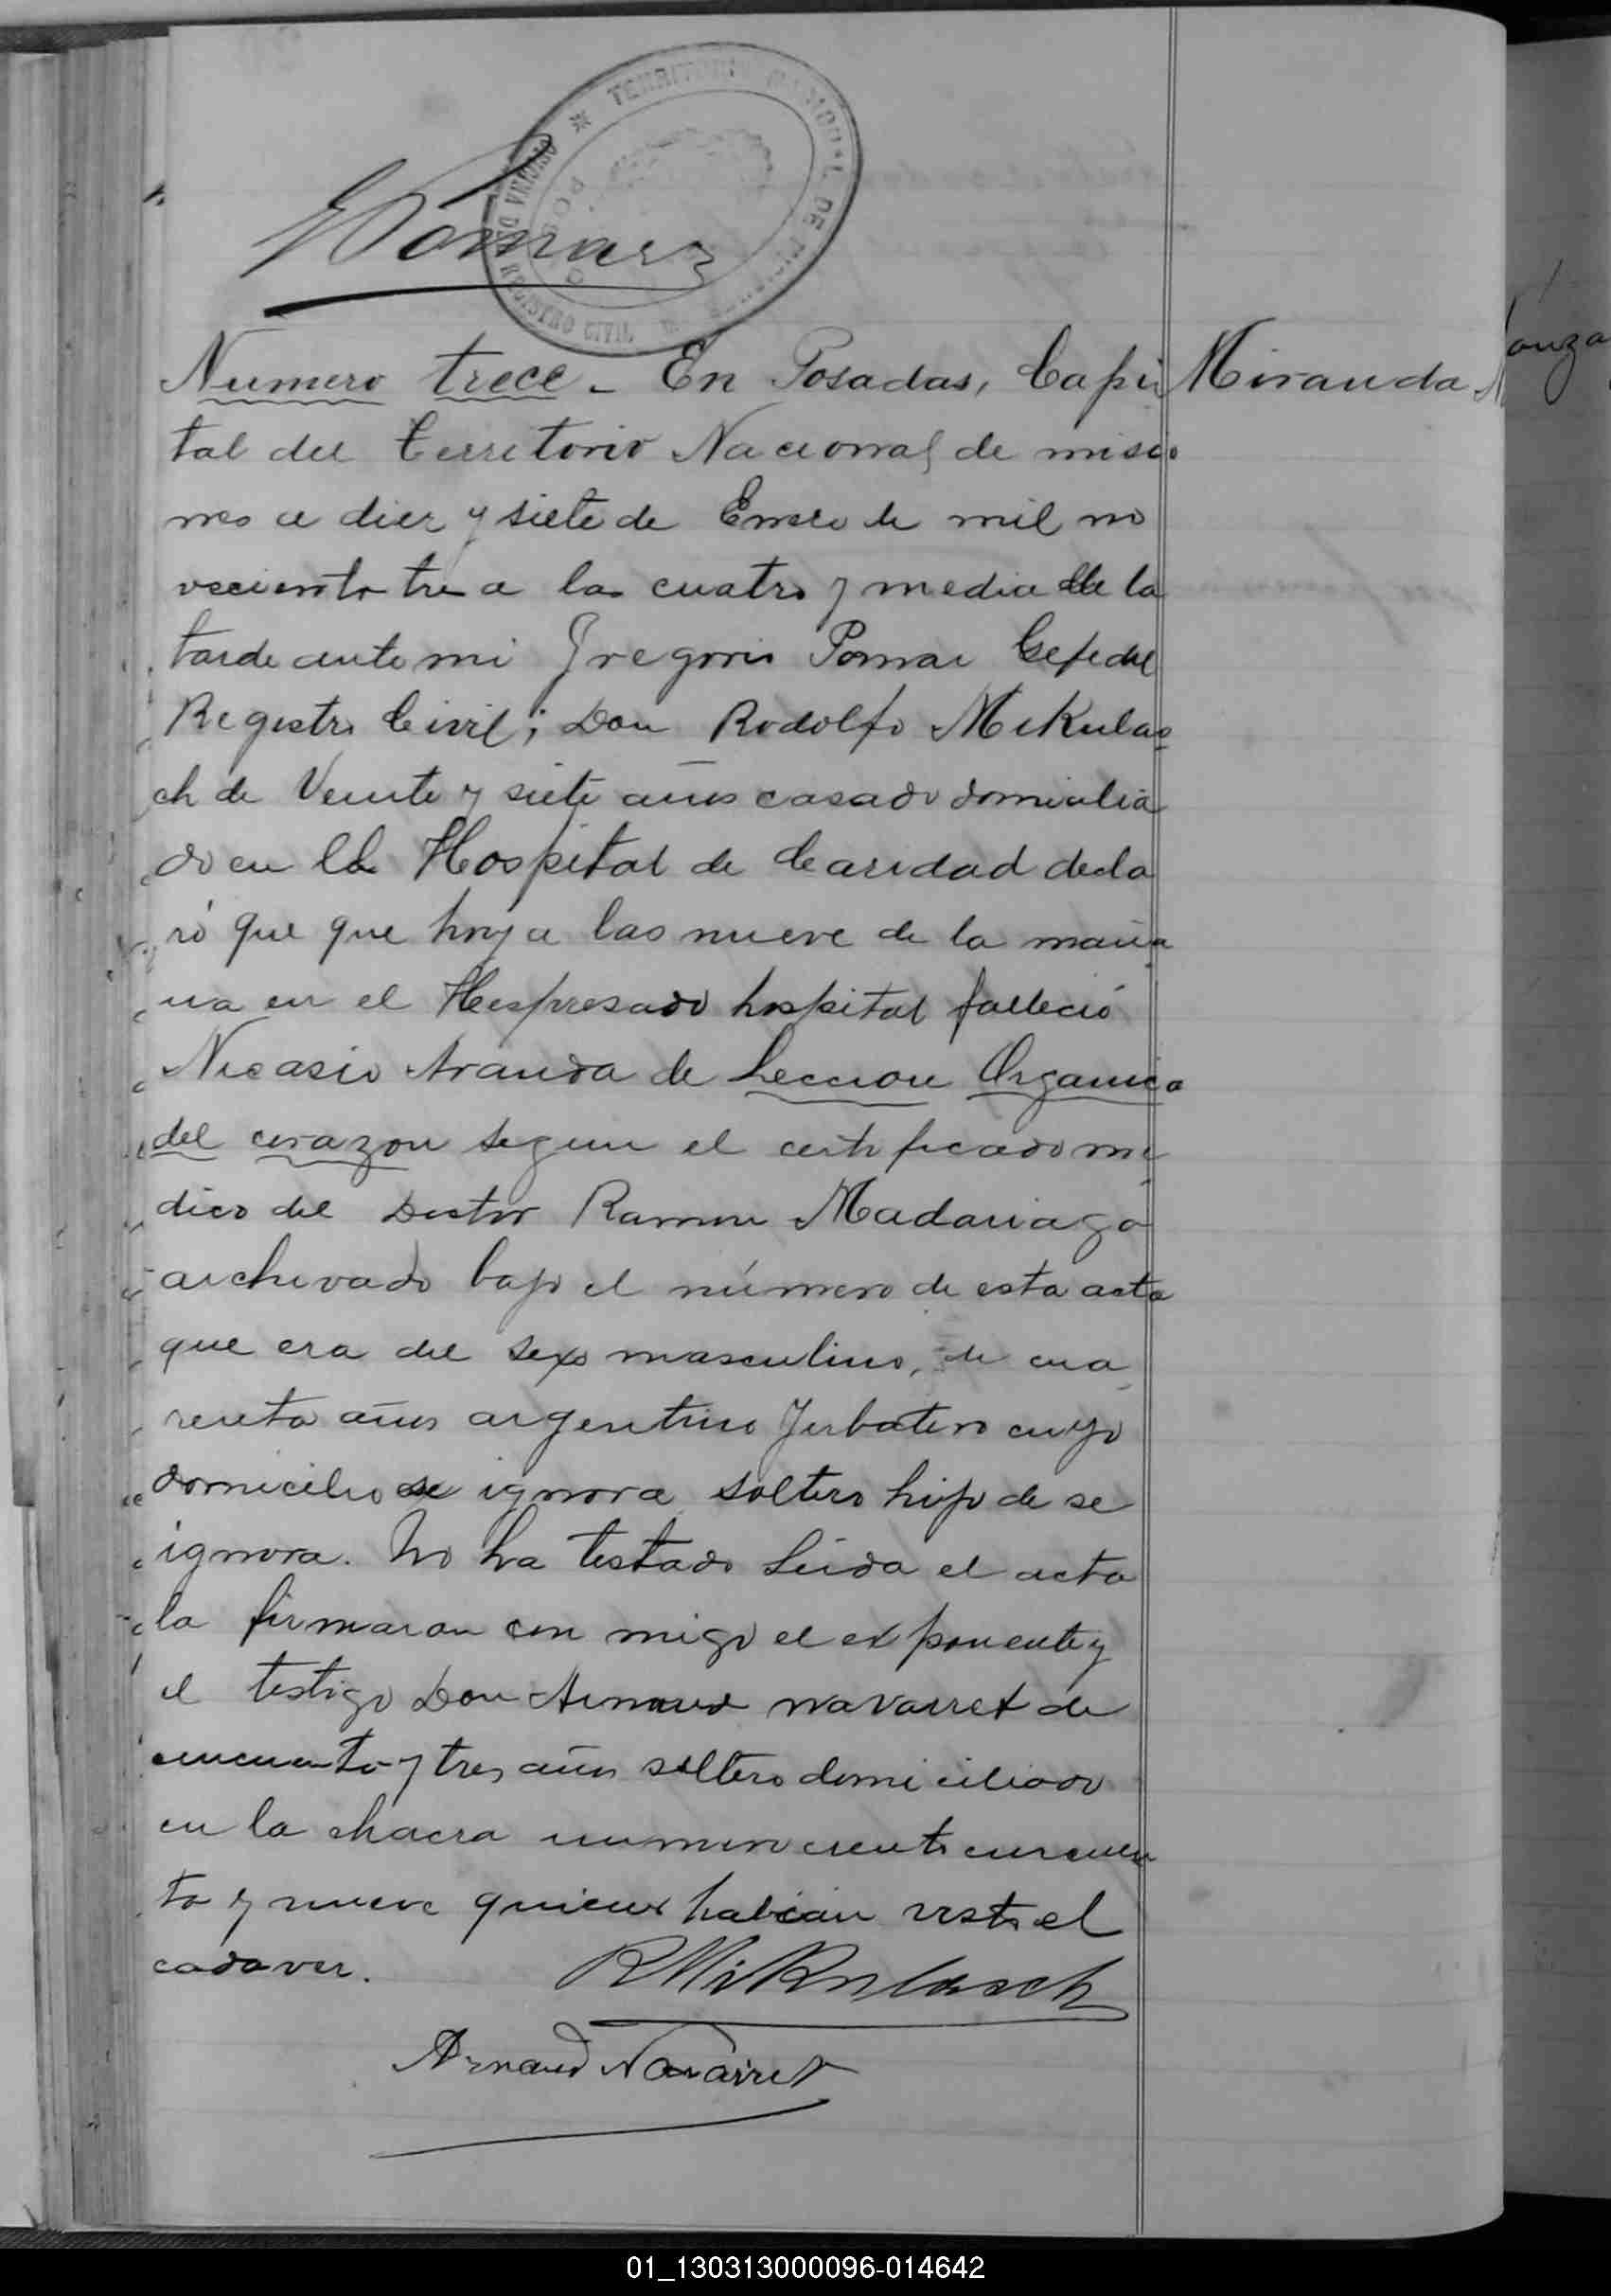 TERRITORIO NACIONAL DE MISIONES
OFICINA DEL REGISTRO CIVIL
GPomar
Numero trece - En Posadas, Capi
Miranda N
tal del Territorio Nacional de misio
nes a diez y siete de Enero de mil no
vecientos tres a las cuatro y media de la
tarde ante mi Gregorio Pomar Gefe del
Registro Civil; Don Rodolfo Mikulas
ch de Veinte y siete años casado domicilia
do en el Hospital de Caridad decla
ró que que hoy a las nueve de la maña
na en el Hespresado hospital falleció
Nicasio Aranda de Leccion Organica
del corazon segun el certificado me
dico del Doctor Ramon Madariaga
archivado bajo el número de esta acta
que era del sexo masculino, de cua
renta años argentino Yerbatero cuyo
domicilio se ignora soltero hijo de se
ignora. No ha testado Leida el acta
la firmaron con migo el exponente y
el testigo Don Arnaud Navarret de
cincuenta y tres años soltero domiciliado
en la chacra numero ciento cincuen
ta y nueve quienes habian visto el
cadaver.
RMikulasch
Arnaud Navarret
01_130313000096-014642